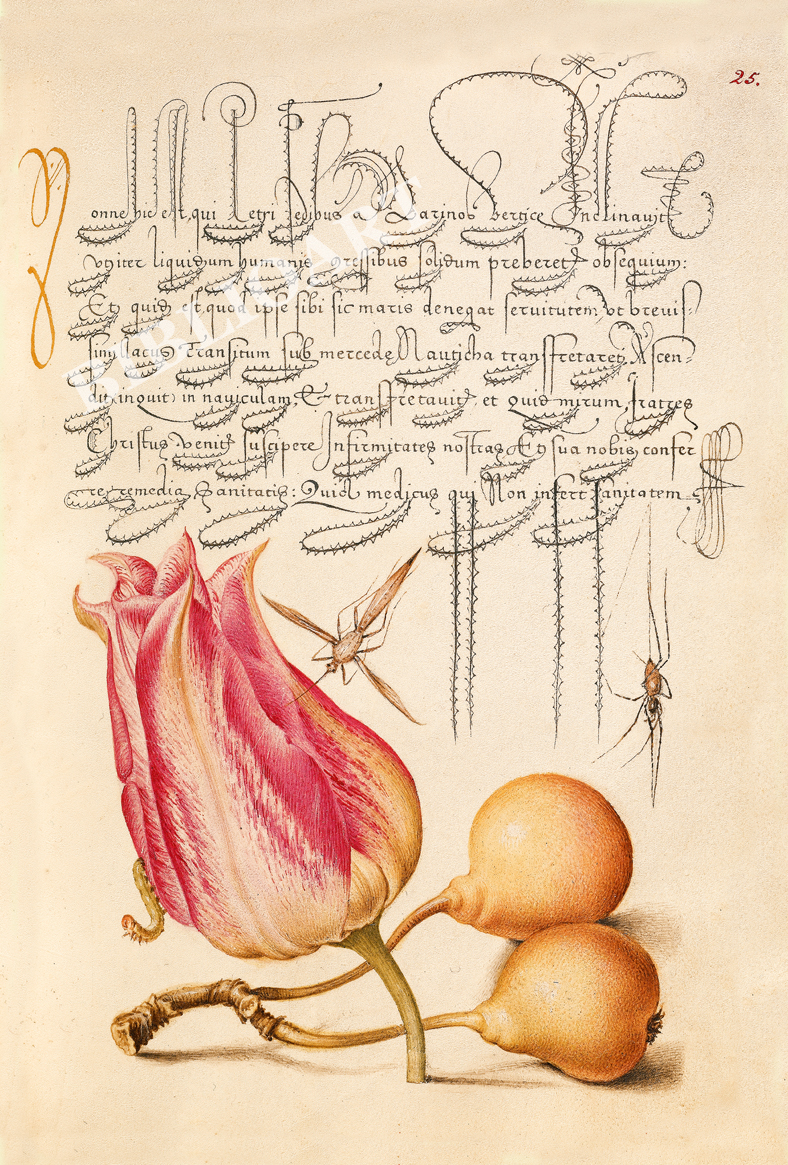 25.
Nonne hic est, qui Petri pedibus a Marinos vertice Inclinavit
Vniter liquidum humanis gressibus solidum preberet obsequium:
Et quid est, quod ipse sibi sic maris denegat seruitutem, vt breuis-
simi lacus transitum sub mercede Nauticha transfretaret, Ascen-
dit, inquit, in nauiculam, & transfretauit, et Quid mirum, fratres
Christus venit suscipere Infirmitates nostras, Et sua nobis confer-
re remedia Sanitatis: Quia medicus qui Non infert Sanitatem
BIBLIOART